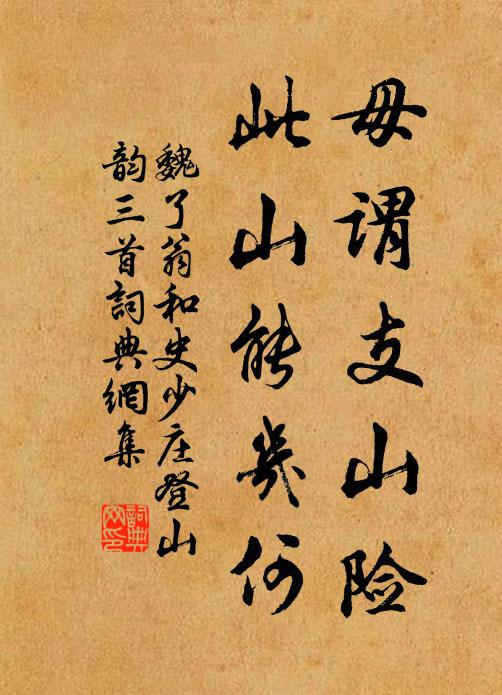 毋谓支山险
此山能几何
魏了翁和史少庄登山
韵三首詞典網集
詞典
网印